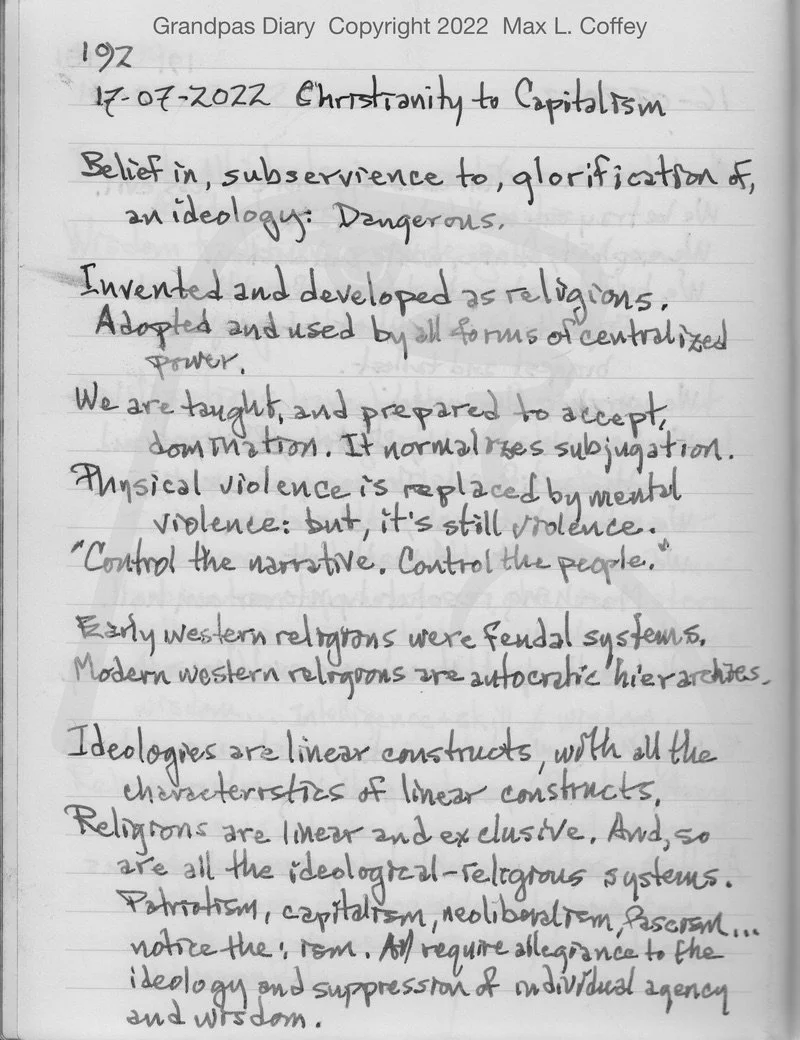 Grandpas Diary Copyright 2022 Max L. Coffey
192
17-07-2022 Christianity to Capitalism
Belief in, subservience to, glorification of,
an ideology: Dangerous.
Invented and developed as religions.
Adopted and used by all forms of centralized
power.
We are taught, and prepared to accept,
domination. It normalizes subjugation.
Physical violence is replaced by mental
violence: but, it's still violence.
"Control the narrative. Control the people."
Early western religions were feudal systems.
Modern western religions are autocratic hierarchies.
Ideologies are linear constructs, with all the
characteristics of linear constructs.
Religions are linear and exclusive. And, so
are all the ideological-religious systems.
Patriotism, capitalism, neoliberalism, fascism...
notice the: ism. All require allegiance to the
ideology and suppression of individual agency
and wisdom.